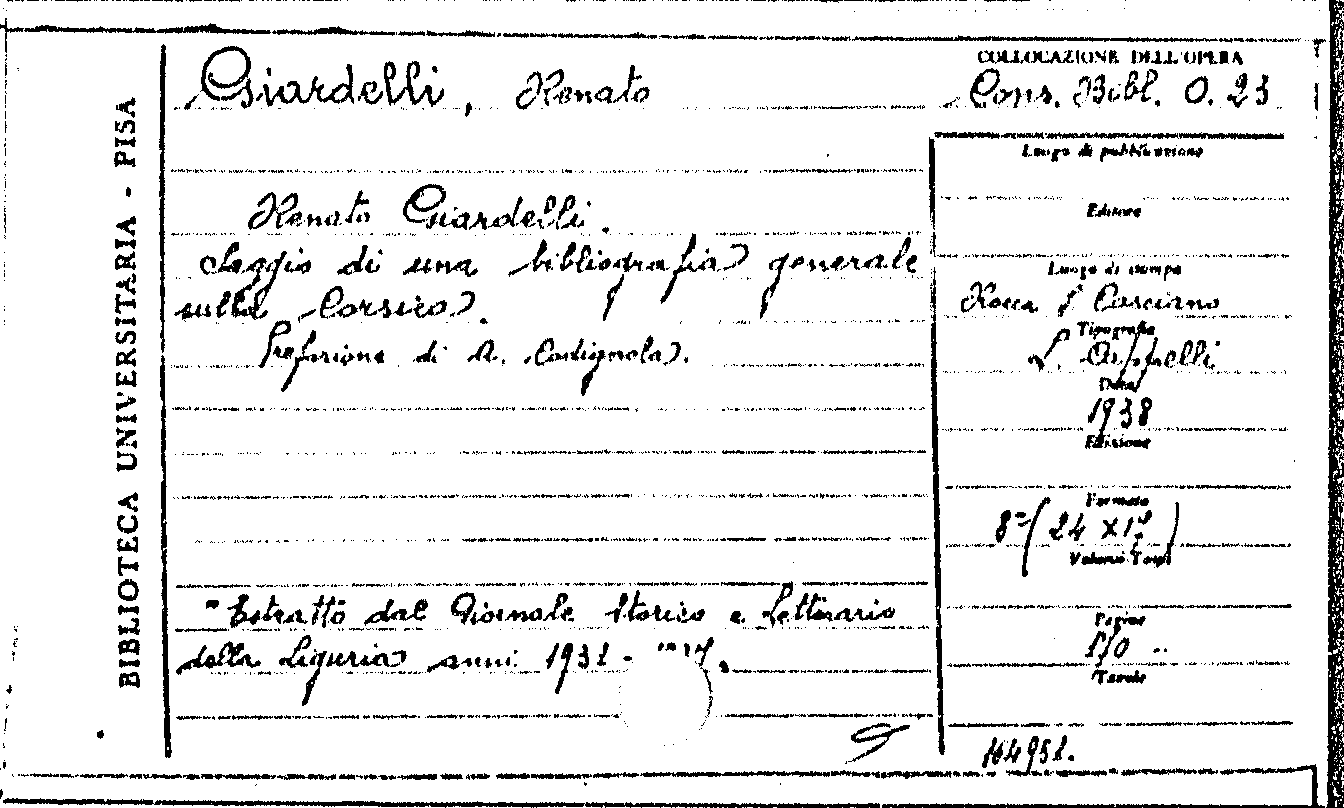 BIBLIOTECA UNIVERSITARIA - PISA
Giardelli, Renato
Renato Giardelli.
Saggio di una bibliografia generale
sulla Corsica.
Prefazione di A. Codignola.
"Estratto dal Giornale Storico e Letterario
della Liguria anni 1931 -
COLLOCAZIONE DELL'OPERA
Cons. Bibl. O. 23
Luogo di pubblicazione
Editore
Luogo di stampa
Rocca S. Casciano
Tipografia
L. Cappelli
Data
1938
Edizione
Formato
8º (24 x 17)
Volumi Tomi
Pagine
Tavole